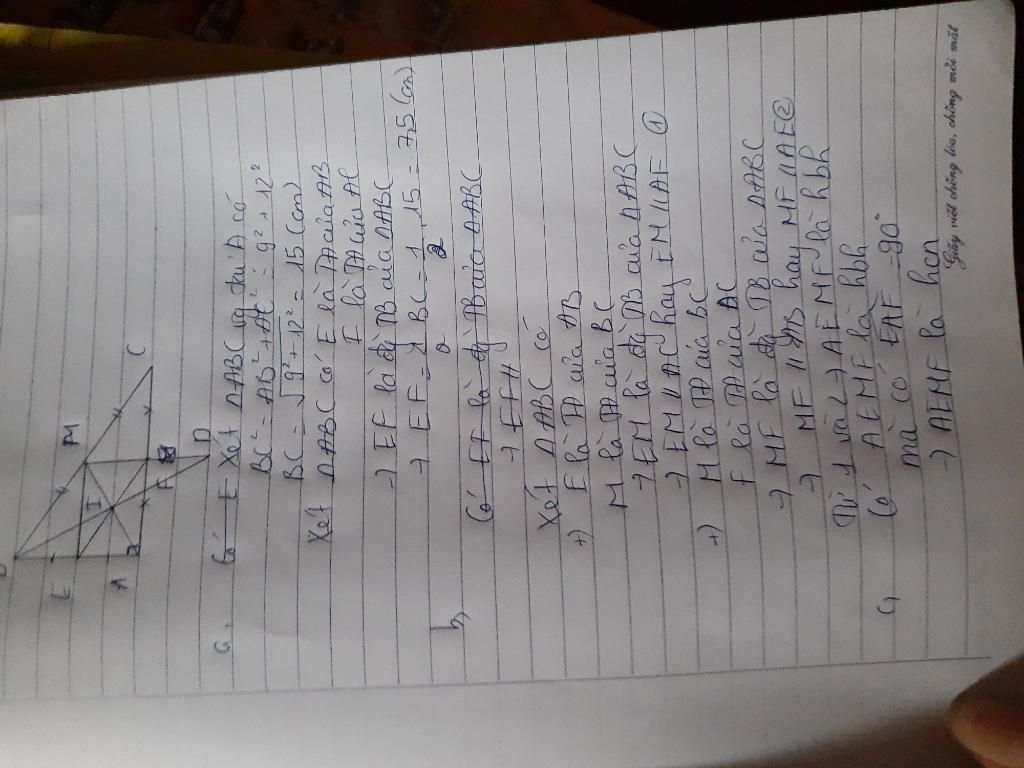 B
M
E
I
C
A
F
D
a, Có E Xét ΔABC vg tại A có
BC² = AB² + AC² = 9² + 12²
BC = √9² + 12² = 15 (cm)
Xét ΔABC có E là TĐ của AB
F là TĐ của AC
→ EF là đg TB của ΔABC
→ EF = 1/2 BC = 1/2 . 15 = 7,5 (cm)
b, Có EF là đg TB của ΔABC
→ EF //
Xét ΔABC có
+) E là TĐ của AB
M là TĐ của BC
→ EM là đg TB của ΔABC
→ EM // AC hay EM // AF ①
+) M là TĐ của BC
F là TĐ của AC
→ MF là đg TB của ΔABC
→ MF // AB hay MF // AE ②
Từ 1 và 2 → AEMF là hbh
c, Có AEMF là hbh
mà có EAF = 90°
→ AEMF là hcn
Giấy viết chống lóa, chống mỏi mắt